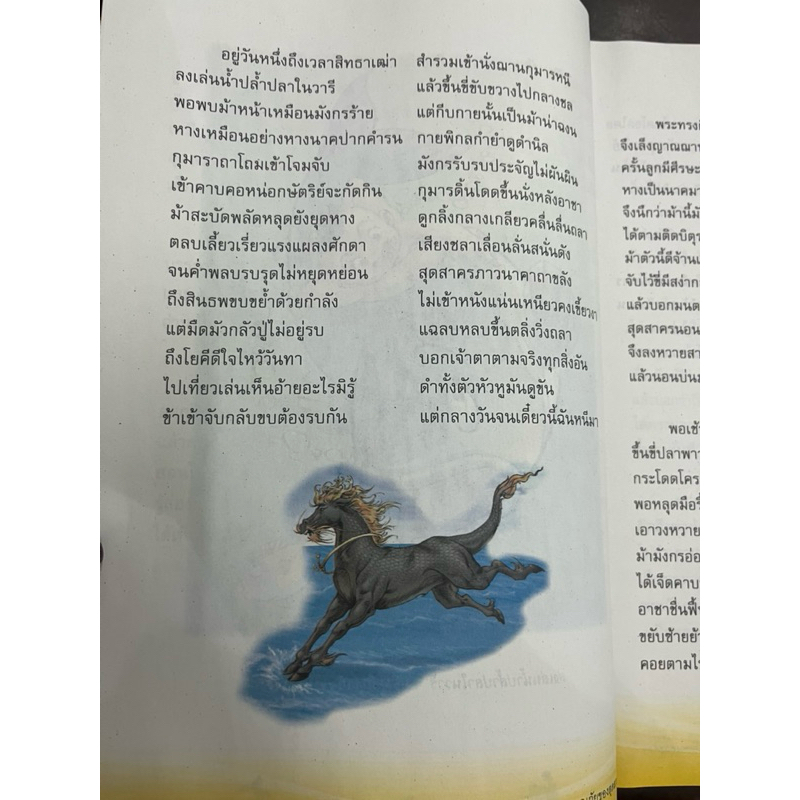 อยู่วันหนึ่งถึงเวลาสิทธาเฒ่า สำรวมเข้านั่งฌานกุมารหนี
ลงเล่นน้ำปล้ำปลาในวารี แล้วขึ้นขี่ขับขวางไปกลางชล
พอพบม้าหน้าเหมือนมังกรร้าย แต่กีบกายนั้นเป็นม้าน่าฉงน
หางเหมือนอย่างหางนาคปากคำรน กายพิกลกำยำดูดำนิล
กุมาราถาโถมเข้าโจมจับ มังกรรับรบประจัญไม่ผันผิน
เข้าคาบคอหน่อกษัตริย์จะกัดกิน กุมารดิ้นโดดขึ้นนั่งหลังอาชา
ม้าสะบัดพลัดหลุดยังยุดหาง ดูกลิ้งกลางเกลียวคลื่นลื่นถลา
ตลบเลี้ยวเรี่ยวแรงแผลงศักดา เสียงชลาเลื่อนลั่นสนั่นดัง
จนค่ำพลบรบรุดไม่หยุดหย่อน สุดสาครภาวนาคาถาขลัง
ถึงสินธพขบขย้ำด้วยกำลัง ไม่เข้าหนังแน่นเหนียวคงเขี้ยวงา
แต่มืดมัวกลัวปู่ไม่อยู่รบ แฉลบหลบขึ้นตลิ่งวิ่งถลา
ถึงโยคีดีใจไหว้วันทา บอกเจ้าตาตามจริงทุกสิ่งอัน
ไปเที่ยวเล่นเห็นอ้ายอะไรมิรู้ ดำทั้งตัวหัวหูมันดูขัน
ข้าเข้าจับกลับขบต้องรบกัน แต่กลางวันจนเดี๋ยวนี้ฉันหนีมา
จึงเล็งญาณ
ครั้นลูกมีศีรษะ
ทางเป็นนาคมา
จึงนึกว่าม้านี้
ได้ตามติดบิตุ
ม้าตัวนี้ดีจ้าน
จับไว้ขี่มีสง่า
แล้วบอกมนต
สุดสาครนอน
จึงลงหวายสา
แล้วนอนบ่น
พอเช้า
ขึ้นขี่ปลาพา
กระโดดโคร
พอหลุดมือ
เอาวงหวาย
ม้ามังกรอ่อ
ได้เจ็ดคาบ
อาชาชื่นฟื้
ขยับซ้ายย้
คอยตาม